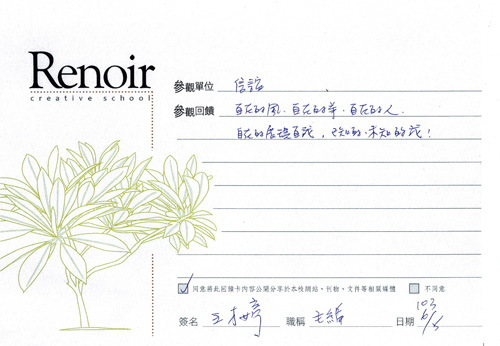 Renoir
creative school
參觀單位 信誼
參觀回饋 自在的風．自在的羊．自在的人．
自在的展現自我，已知的．未知的我！
同意將此回饋卡內容公開分享於本校網站、刊物、文件等相關媒體 不同意
簽名 王 婷 職稱 主編 日期 103 6/5